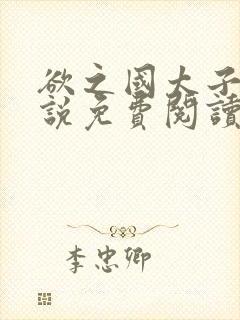 欲之國大子
說免費閱讀
李忠卿